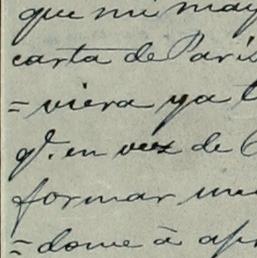 que mi may
carta de Paris
=viera ya
qe. en vez de
formar un
=dome á